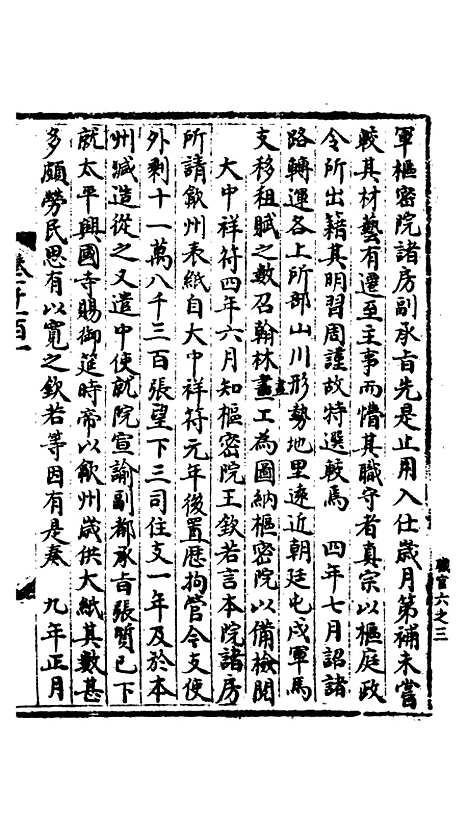 職官六之三
軍樞密院諸房副承旨先是止用入仕歲月第補未嘗
較其材藝有遷至主事而懵其職守者真宗以樞庭政
令所出籍其明習周謹故特選較焉　四年七月詔諸
路轉運各上所部山川形勢地里遠近朝廷屯戍軍馬
支移租賦之數召翰林畫工為圖納樞密院以備檢閱
大中祥符四年六月知樞密院王欽若言本院諸房
所請歙州表紙自大中祥符元年後置歷拘管令支使
外剩十一萬八千三百張望下三司住支一年及於本
州減造從之又遣中使就院宣諭副都承旨張質已下
就太平興國寺賜御筵時帝以歙州歲供大紙其數甚
多頗勞民思有以寬之欽若等因有是奏　九年正月